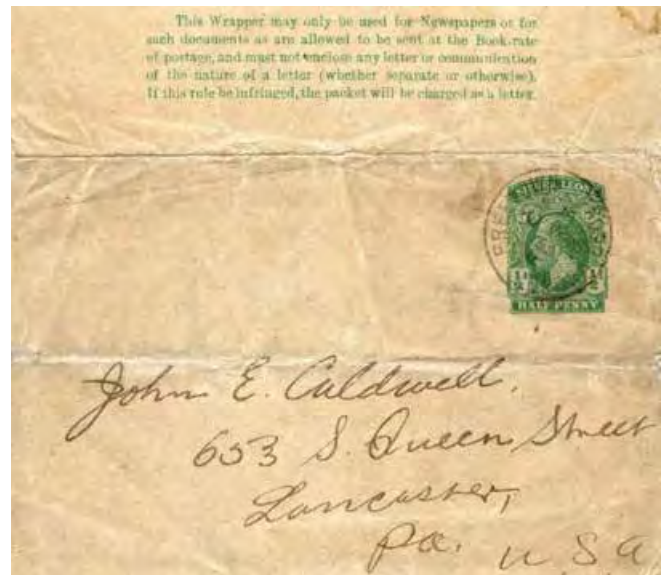 This Wrapper may only be used for Newspapers or for
such documents as are allowed to be sent at the Book-rate
of postage, and must not enclose any letter or communication
of the nature of a letter (whether separate or otherwise).
If this rule be infringed, the packet will be charged as a letter.
SIERRA LEONE
½ ½
HALF PENNY
John E. Caldwell,
653 S. Queen Street
Lancaster,
Pa. U S A